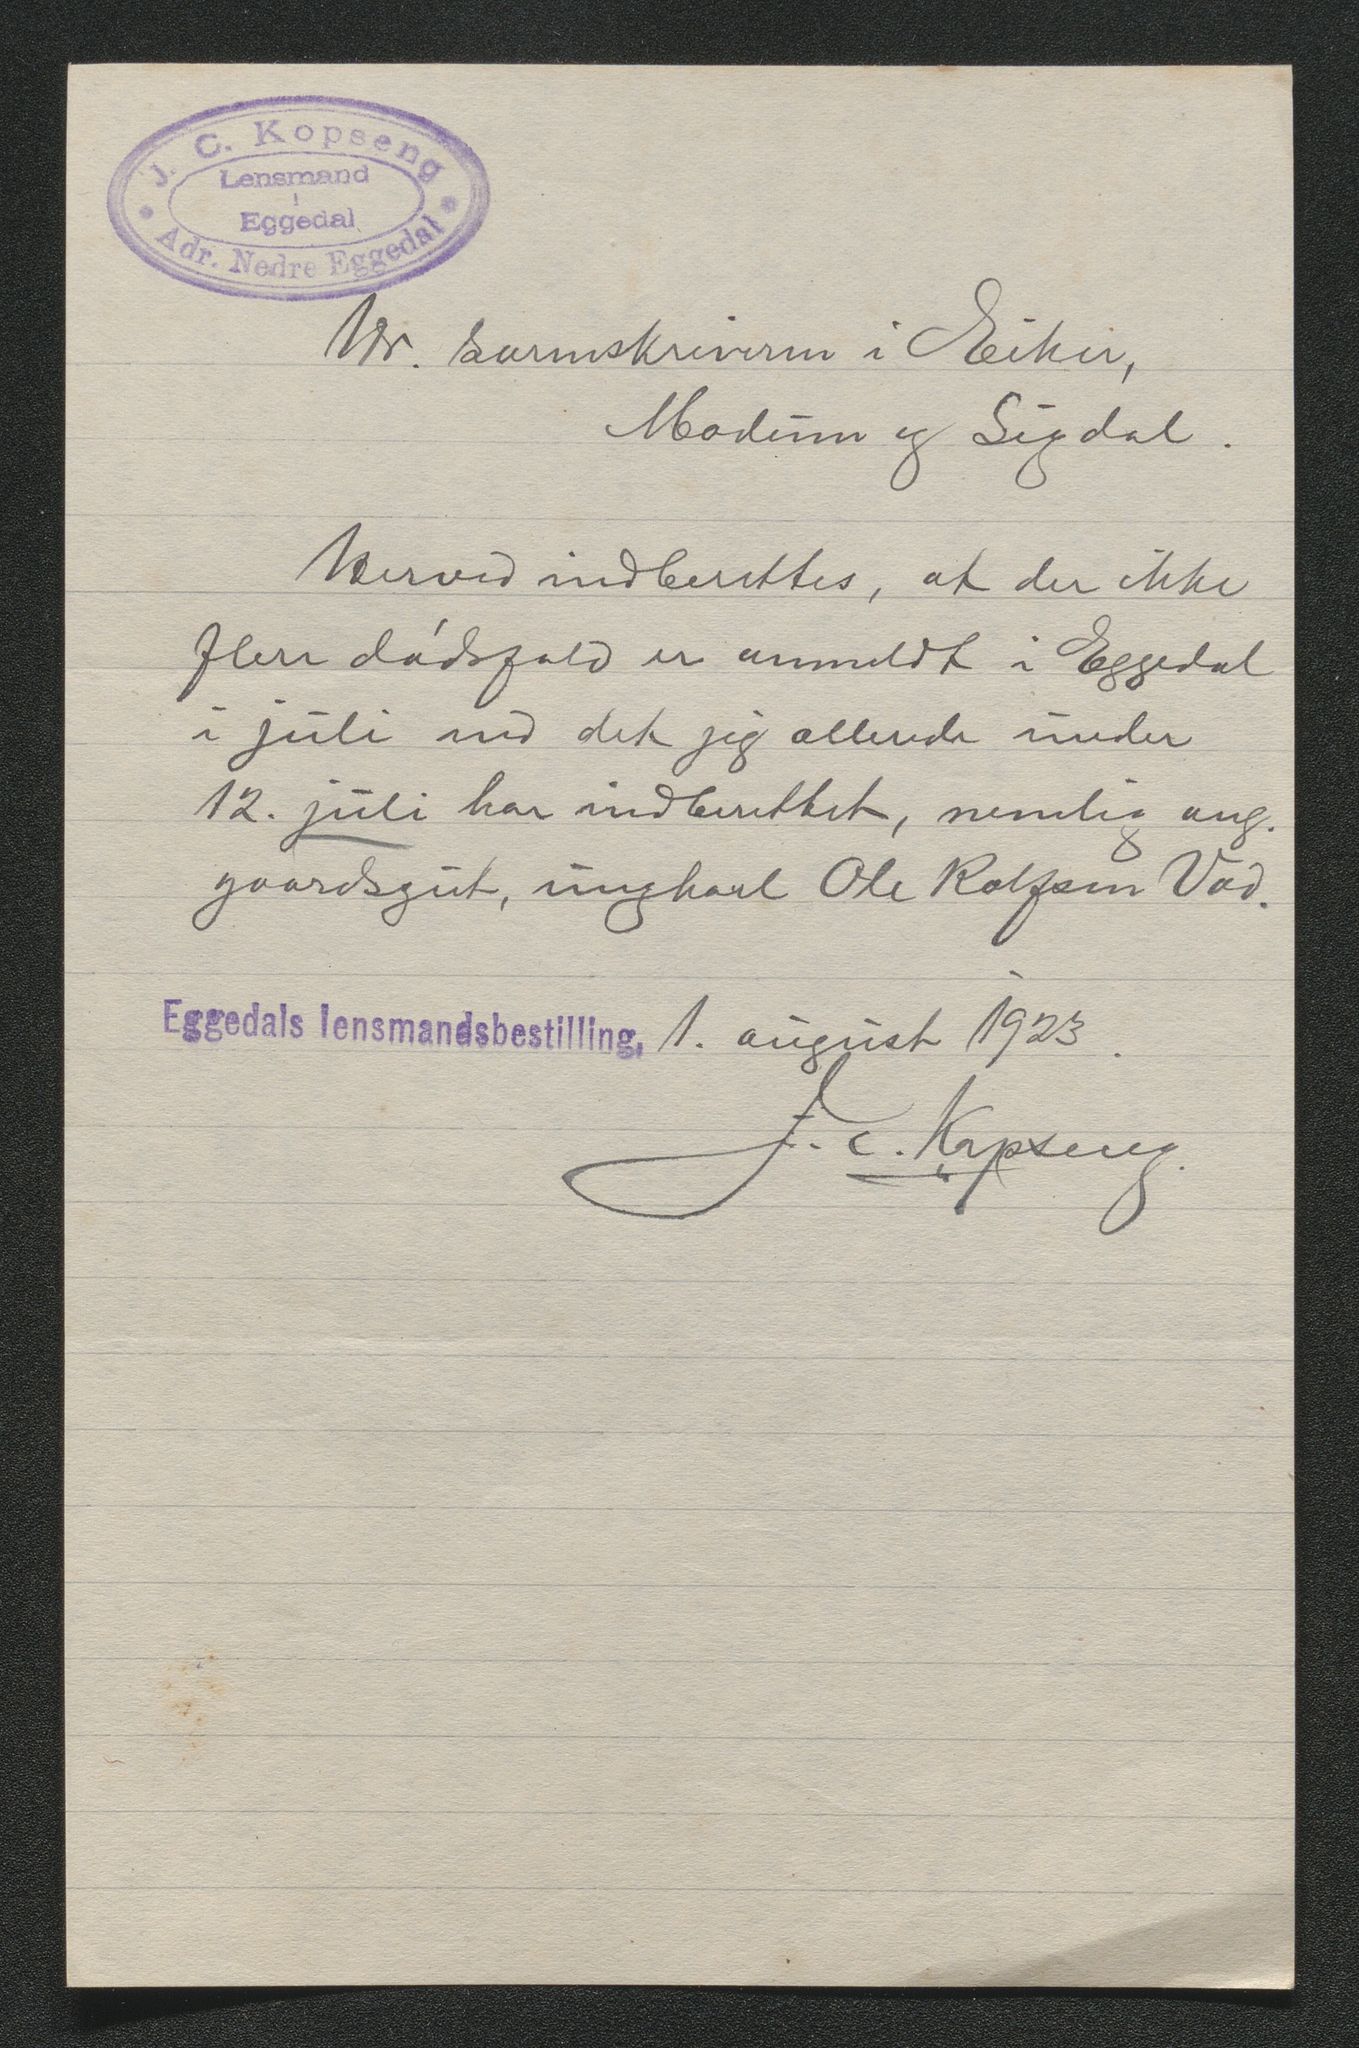 J. C. Kopseng
Lensmand
i
Eggedal
Adr. Nedre Eggedal
Hr. sorenskriveren i Eiker,
Modum og Sigdal.
Herved indberettes, at der ikke
flere dödsfald er anmeldt i Eggedal
i juli end det jeg allerede under
12. juli har indberettet, nemlig ang.
gaardsgut, ungkarl Ole Rolfsen Vad.
Eggedals lensmandsbestilling, 1. august 1923.
J. C. Kopseng.